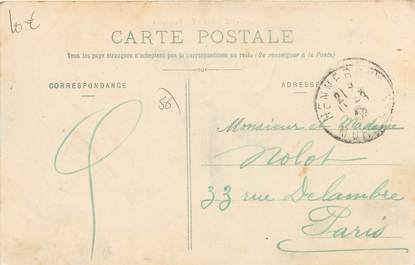 10€
CARTE POSTALE
Tous les pays étrangers n'acceptent pas la correspondance au recto (Se renseigner à la Poste)
CORRESPONDANCE
ADRESSE
56
HENNEBONT
Monsieur et Madame
Nolot
33 rue Delambre
Paris